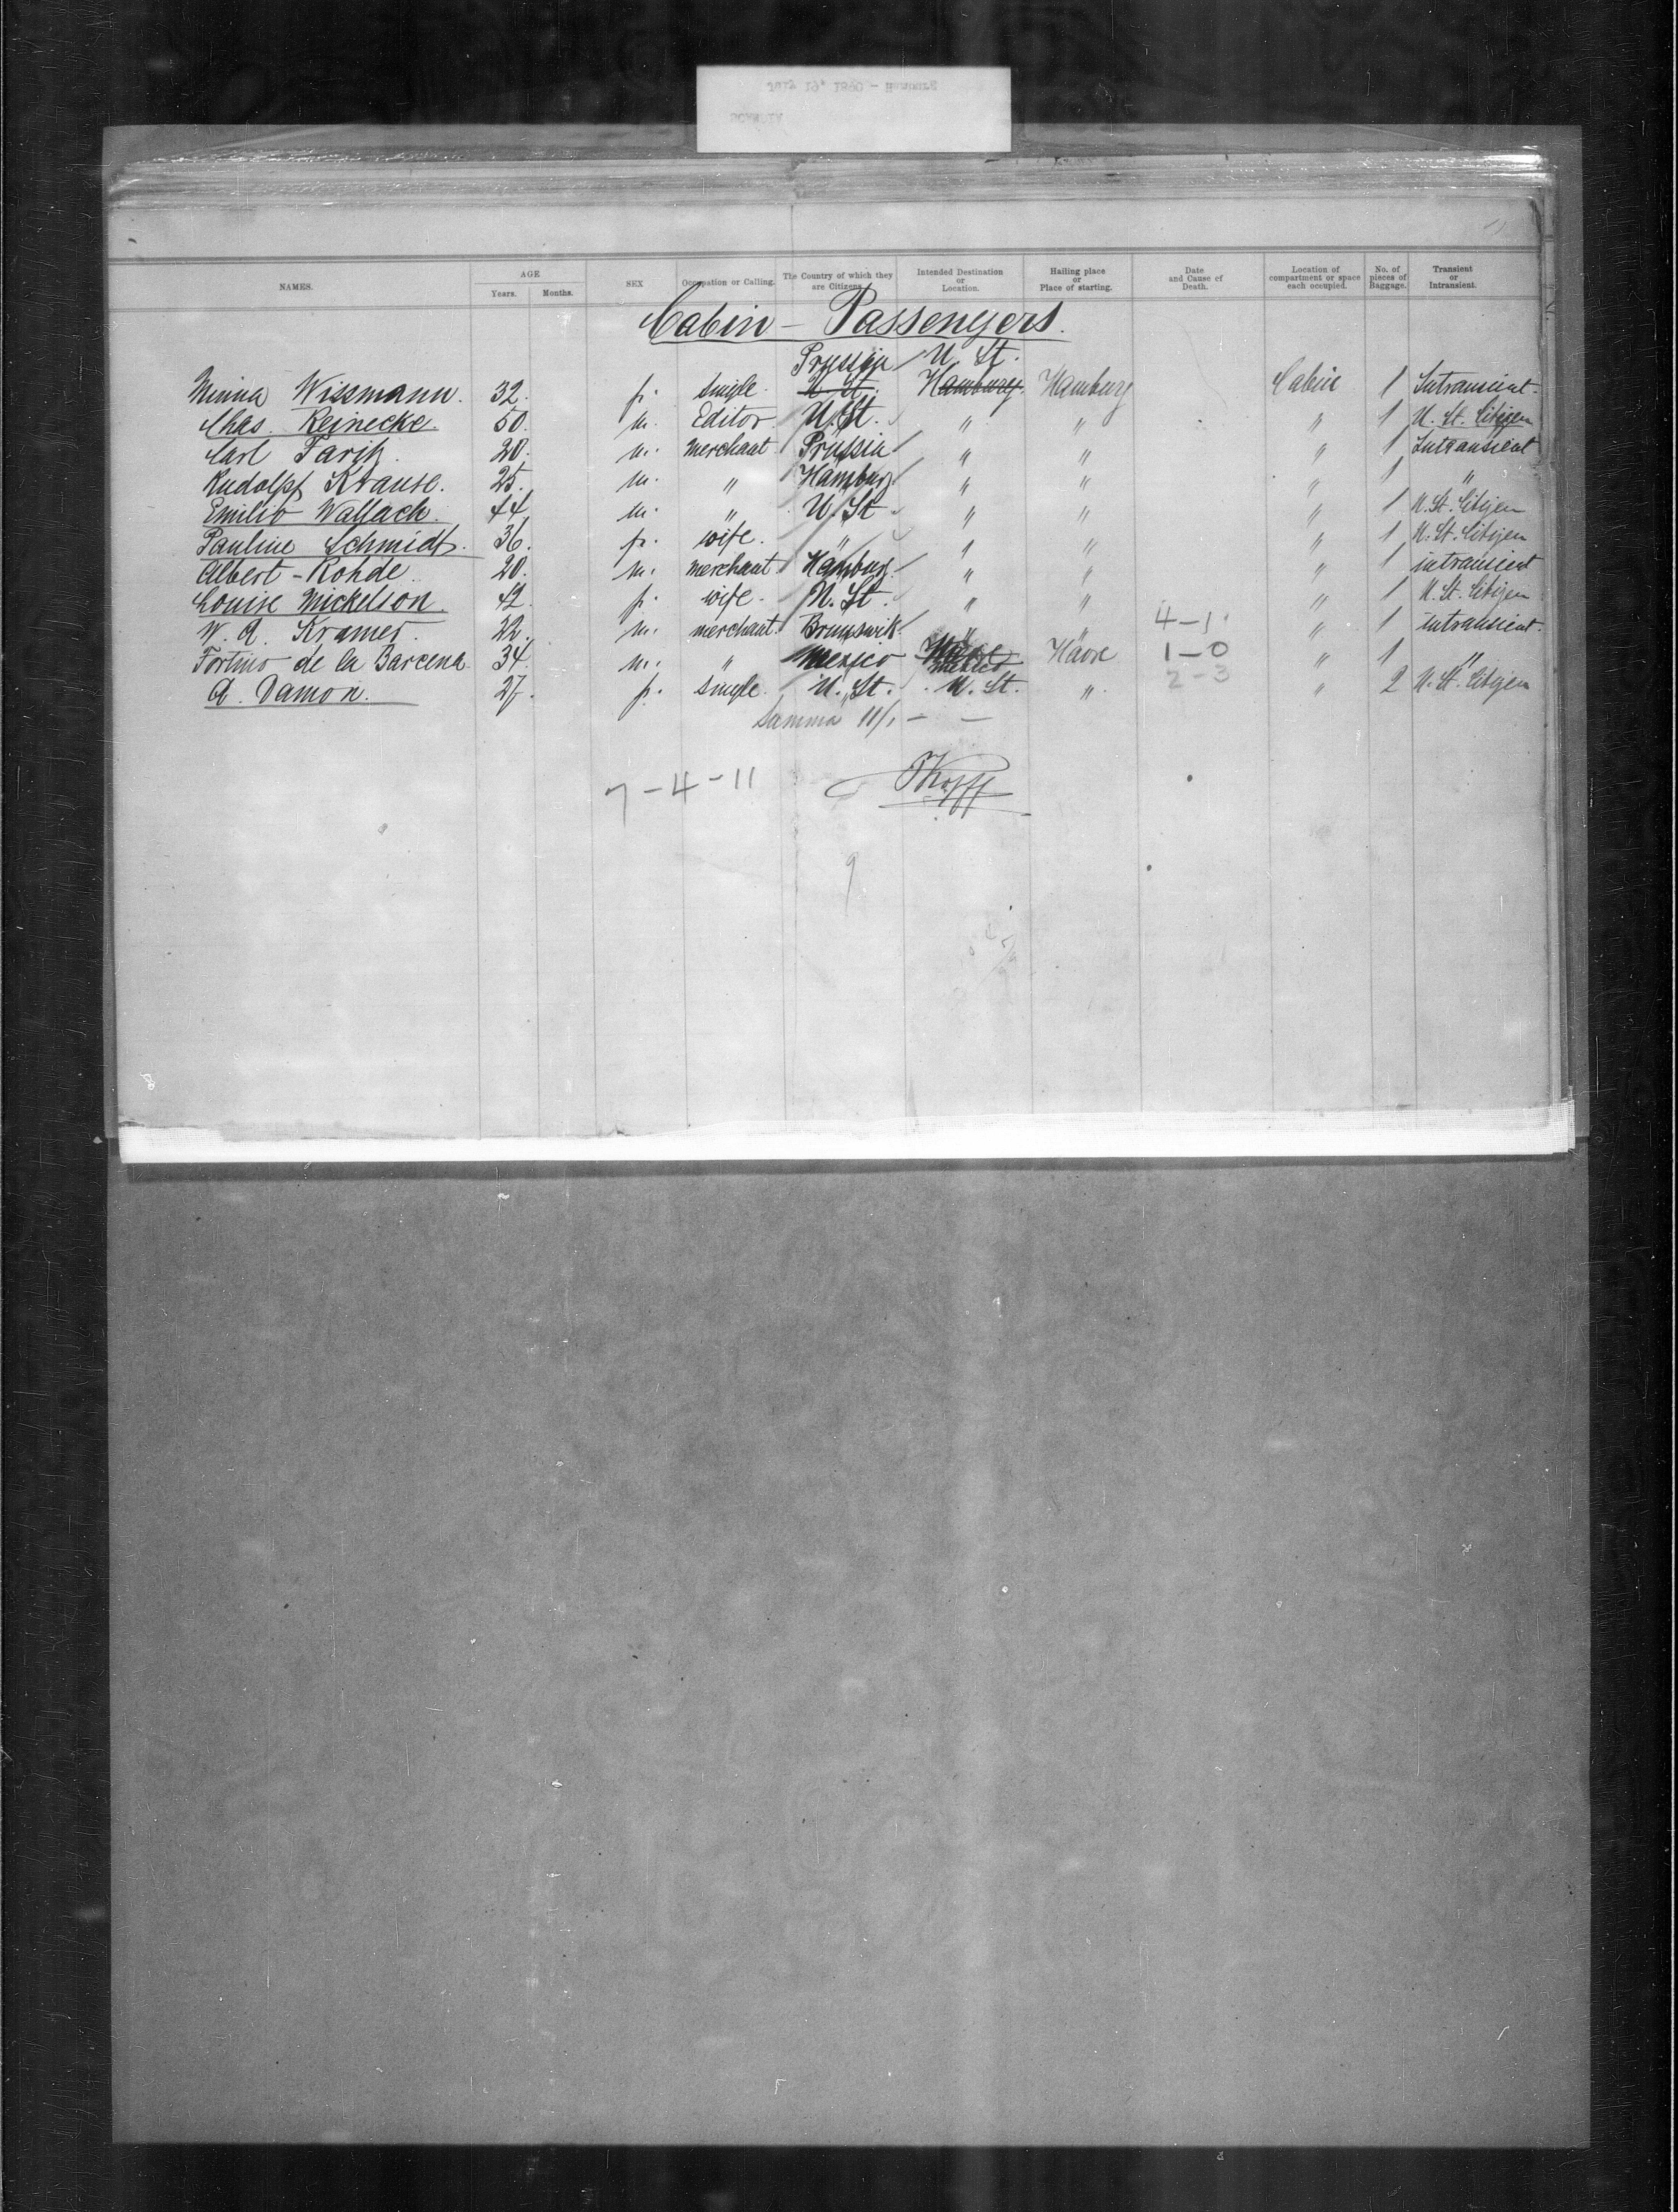 July 19, 1890 - Hamburg
BOHEMIA
NAMES. AGE Years. Months. SEX Occupation or Calling. The Country of which they are Citizens. Intended Destination or Location. Hailing place or Place of starting. Date and Cause of Death. Location of compartment or space each occupied. No. of pieces of Baggage. Transient or Intransient.
Cabin - Passengers.
Prussia U. St.
Minna Wissmann. 32. f. single. U. St. Hamburg. Hamburg Cabin 1 Intransient.
Chas. Reinecke. 50. m. Editor. U. St. " " " 1 U. St. Citizen
Carl Farih. 20. m. merchant Prussia " " " 1 Intransient
Rudolph Krause. 25. m. " Hamburg " " " 1 "
Emilio Wallach. 44. m. " U. St. " " " 1 U. St. Citizen
Pauline Schmidt. 36. f. wife. " " " " 1 U. St. Citizen
Albert - Rohde. 20. m. merchant Hamburg " " " 1 intransient
Louise Mickelson. 42. f. wife. U. St. " " " 1 U. St. Citizen
W. A. Kramer. 22. m. merchant. Brunswik. " " 4-1 " 1 intransient.
Fortino de la Barcena 34. m. " Mexico Mexico Havre 1-0 " 1 "
A. Damon. 27. f. single. U. St. U. St. " 2-3 " 2 U. St. Citizen
Summa 11/1 - -
7-4-11
9